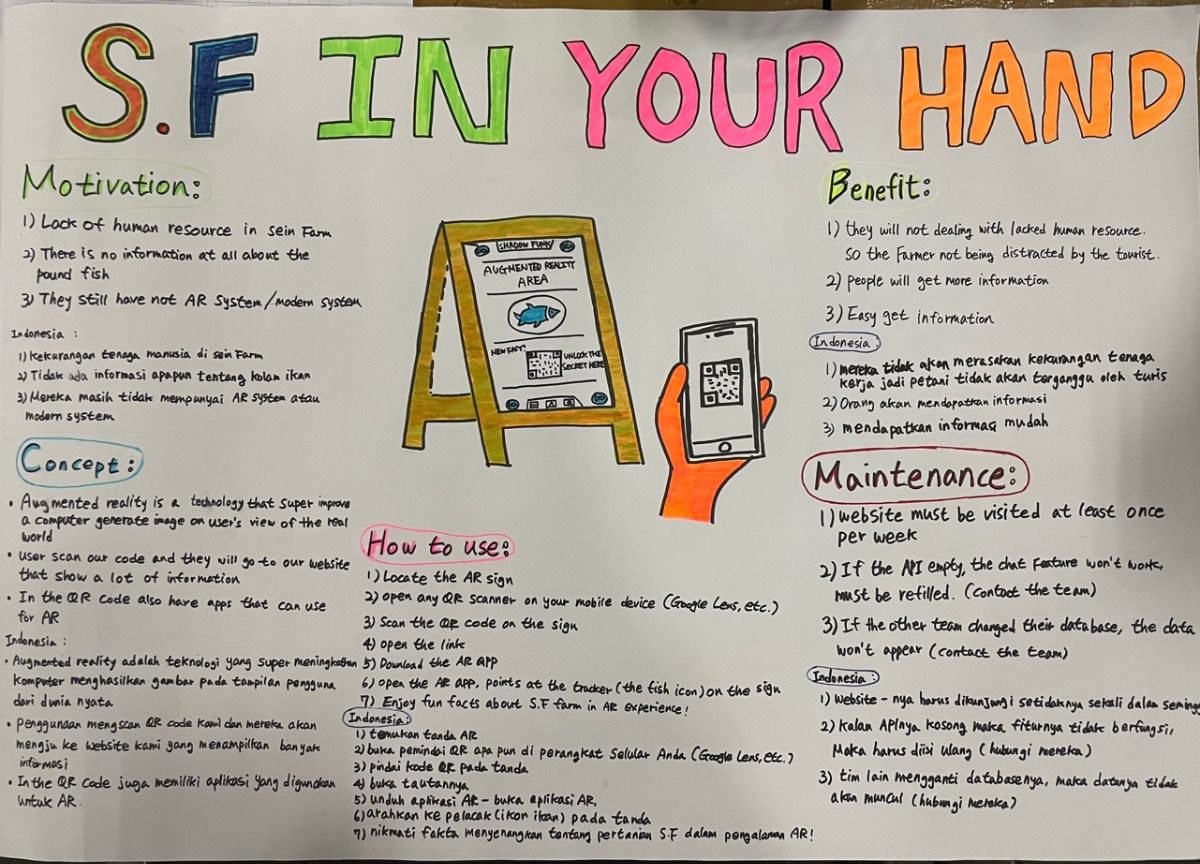 S.F IN YOUR HAND
Motivation:
1) Lack of human resource in sein Farm
2) There is no information at all about the
pound fish
3) They still have not AR System/modern system
Indonesia :
1) Kekurangan tenaga manusia di sein Farm
2) Tidak ada informasi apapun tentang kolam ikan
3) Mereka masih tidak mempunyai AR system atau
modern system
Concept:
• Augmented reality is a technology that super improve
a computer generate image on user's view of the real
world
• User scan our code and they will go to our website
that show a lot of information
• In the QR code also have apps that can use
for AR
Indonesia :
• Augmented reality adalah teknologi yang super meningkatkan
komputer menghasilkan gambar pada tampilan pengguna
dari dunia nyata
• penggunaan mengscan QR code kami dan mereka akan
mengju ke website kami yang menampilkan banyak
informasi
• In the QR Code juga memiliki aplikasi yang digunakan
untuk AR.
SHADOW PUNK
AUGMENTED REALITY
AREA
NEW FACT:
UNLOCK THE
SECRET HERE
How to use:
1) Locate the AR sign
2) open any QR scanner on your mobile device (Google Lens, etc.)
3) Scan the QR code on the sign
4) open the link
5) Download the AR APP
6) open the AR APP, points at the tracker (the fish icon) on the sign
7) Enjoy fun facts about S.F farm in AR experience!
Indonesia:
1) temukan tanda AR
2) buka pemindai QR apa pun di perangkat Selular Anda (Google Lens, etc.)
3) pindai kode QR pada tanda
4) buka tautannya
5) unduh aplikasi AR - buka aplikasi AR,
6) arahkan ke pelacak (ikon ikan) pada tanda
7) nikmati fakta menyenangkan tentang pertanian S.F dalam pengalaman AR!
Benefit:
1) they will not dealing with lacked human resource.
So the Farmer not being distracted by the tourist.
2) people will get more information
3) Easy get information
Indonesia:
1) mereka tidak akan merasakan kekurangan tenaga
kerja jadi petani tidak akan terganggu oleh turis
2) Orang akan mendapatkan informasi
3) mendapatkan informasi mudah
Maintenance:
1) website must be visited at least once
per week
2) If the API empty, the chat Feature won't work,
must be refilled. (contact the team)
3) If the other team changed their database, the data
won't appear (contact the team)
Indonesia:
1) Website - nya harus dikunjungi setidaknya sekali dalam seminggu
2) Kalau APInya kosong maka fiturnya tidak berfungsi,
Maka harus diisi ulang (hubungi mereka)
3) tim lain mengganti databasenya, maka datanya tidak
akan muncul (hubungi mereka)